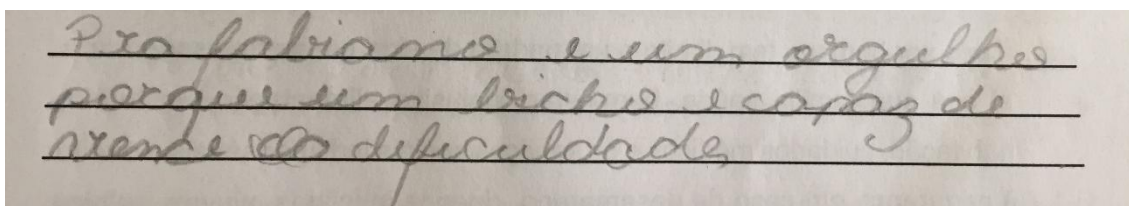 Pra fabiano e um orgulho
porque um bicho e capaz de
dificuldades